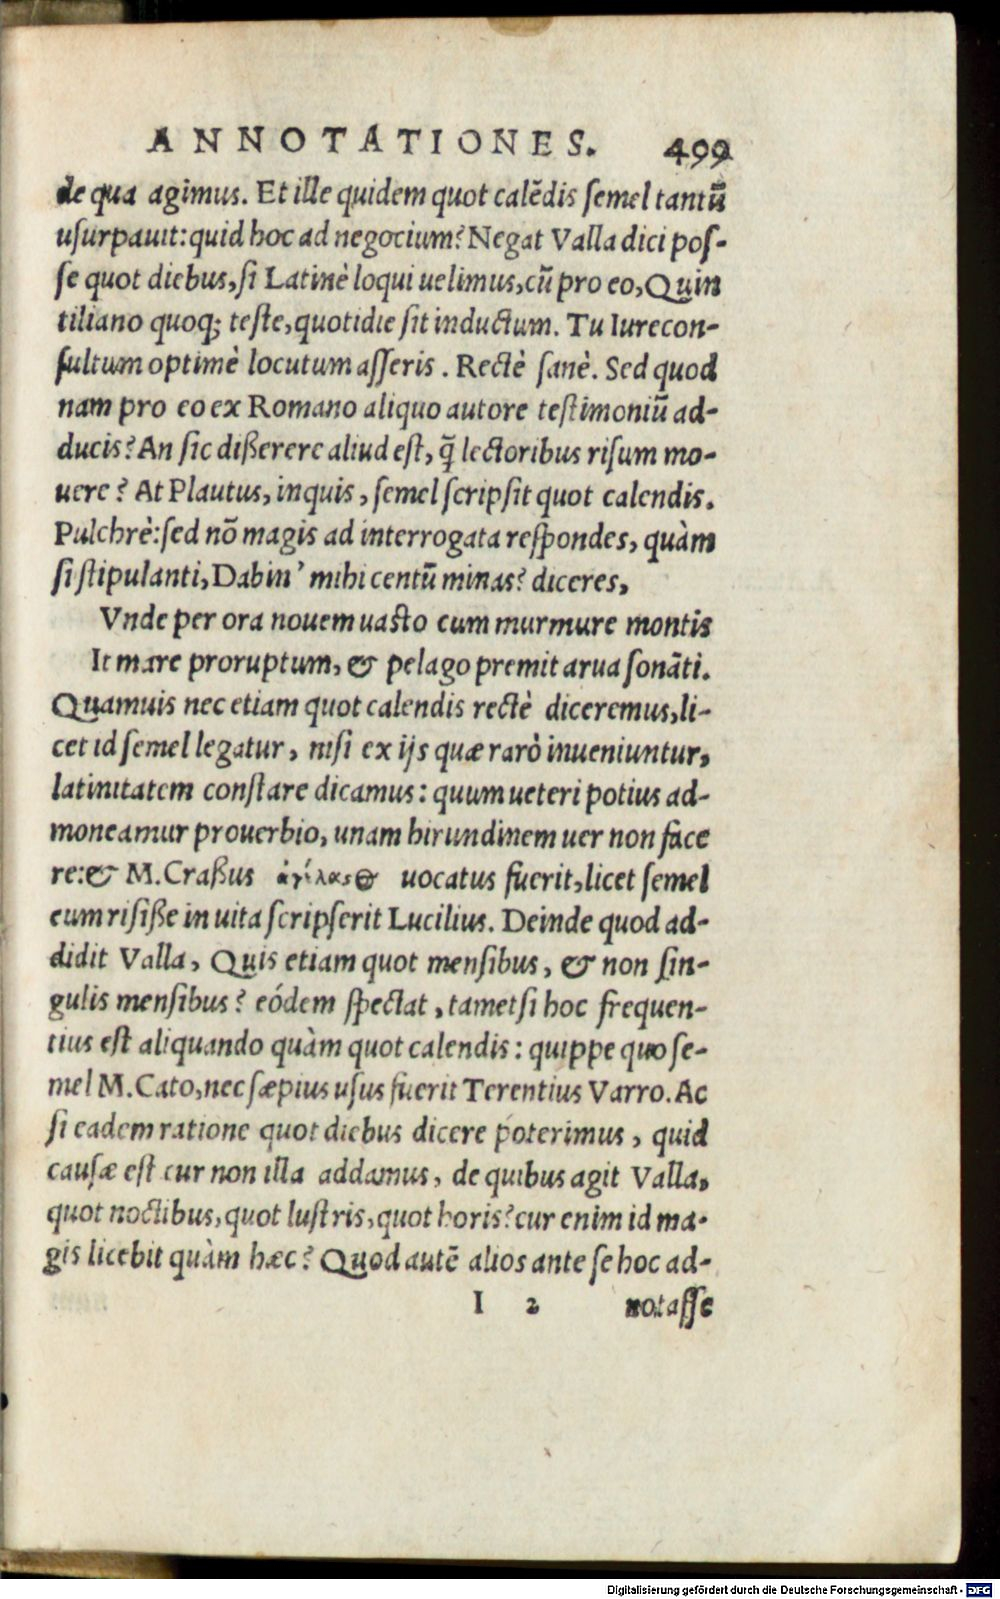 ANNOTATIONES. 499
de qua agimus. Et ille quidem quot calẽdis semel tantũ
usurpauit: quid hoc ad negocium? Negat Valla dici pos-
se quot diebus, si Latinè loqui uelimus, cũ pro eo, Quin
tiliano quoq; teste, quotidie sit inductum. Tu Iurecon-
sultum optimè locutum asseris. Rectè sanè. Sed quod
nam pro eo ex Romano aliquo autore testimoniũ ad-
ducis? An sic dißerere aliud est, q̃ lectoribus risum mo-
uere? At Plautus, inquis, semel scripsit quot calendis.
Pulchrè: sed nõ magis ad interrogata respondes, quàm
si stipulanti, Dabin' mihi centũ minas? diceres,
Vnde per ora nouem uasto cum murmure montis
It mare proruptum, & pelago premit arua sonãti.
Quamuis nec etiam quot calendis rectè diceremus, li-
cet id semel legatur, nisi ex ijs quæ rarò inueniuntur,
latinitatem constare dicamus: quum ueteri potius ad-
moneamur prouerbio, unam hirundinem uer non face
re: & M. Craßus ἀγέλαστος uocatus fuerit, licet semel
eum risiße in uita scripserit Lucilius. Deinde quod ad-
didit Valla, Quis etiam quot mensibus, & non sin-
gulis mensibus? eódem spectat, tametsi hoc frequen-
tius est aliquando quàm quot calendis: quippe quo se-
mel M. Cato, nec sæpius usus fuerit Terentius Varro. Ac
si eadem ratione quot diebus dicere poterimus, quid
causæ est cur non illa addamus, de quibus agit Valla,
quot noctibus, quot lustris, quot horis? cur enim id ma-
gis licebit quàm hæc? Quod autẽ alios ante se hoc ad-
I 2 notasse
Digitalisierung gefördert durch die Deutsche Forschungsgemeinschaft - DFG